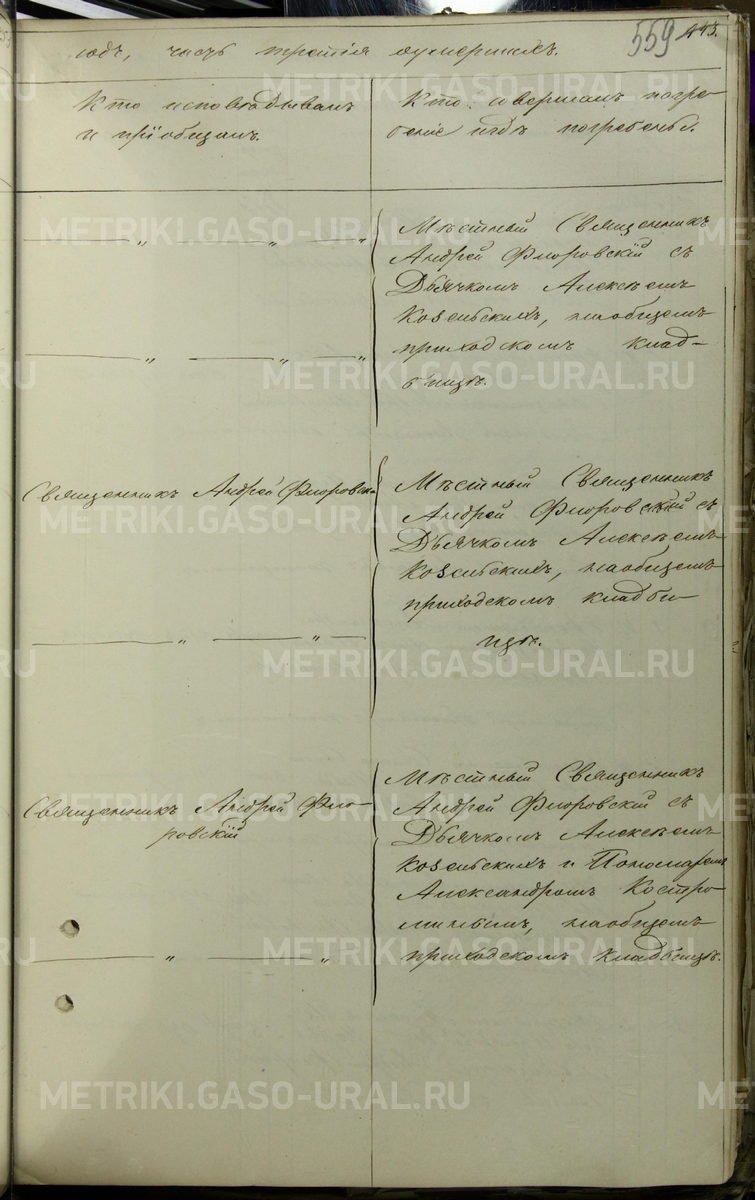 годъ, часть третія о умершихъ.
559 443.
Кто исповѣдывалъ
и пріобщалъ.
Кто совершалъ погре-
беніе и гдѣ погребены.
Мѣстный Священникъ
Андрей Флоровскій съ
Дьячкомъ Алексѣемъ
Козельскихъ, на общемъ
приходскомъ клад-
бищѣ.
Священникъ Андрей Флоровскій
Мѣстный Священникъ
Андрей Флоровскій съ
Дьячкомъ Алексѣемъ
Козельскихъ, на общемъ
приходскомъ кладби-
щѣ.
Священникъ Андрей Фло-
ровскій
Мѣстный Священникъ
Андрей Флоровскій съ
Дьячкомъ Алексѣемъ
Козельскихъ и Пономаремъ
Александромъ Костро-
минымъ, на общемъ
приходскомъ кладбищѣ.
METRIKI.GASO-URAL.RU